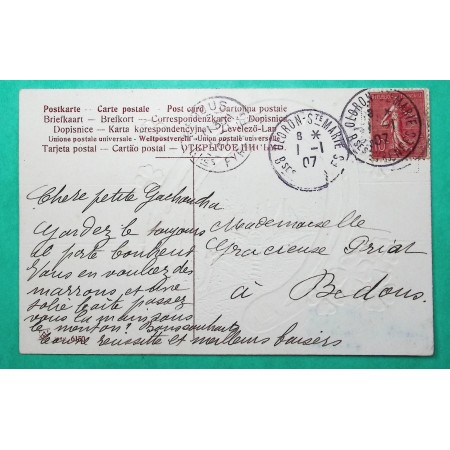 Postkarte - Carte postale - Post card - Cartolina postale
Briefkaart - Brefkort - Correspondenzkarte - Dopisnice
Dopisnice - Karta korespondencyjna - Levelező-Lap
Unione postale universale - Weltpostverein - Union postale universelle
Tarjeta postal - Cartão postal - ОТКРЫТОЕ ПИСЬМО
OLORON-STE MARIE
8 *
1 -1
07
BSES PYRÉNÉES
OLORON-STE MARIE
07
Chère petite
Gardez le toujours
il porte bonheur
Vous en voulez des
marrons, et une
jolie boîte passez
vous la main sous
le menton! Bons souhaits
bonne réussite et meilleurs baisers
Mademoiselle
Gracieuse Priat
à Bedous.